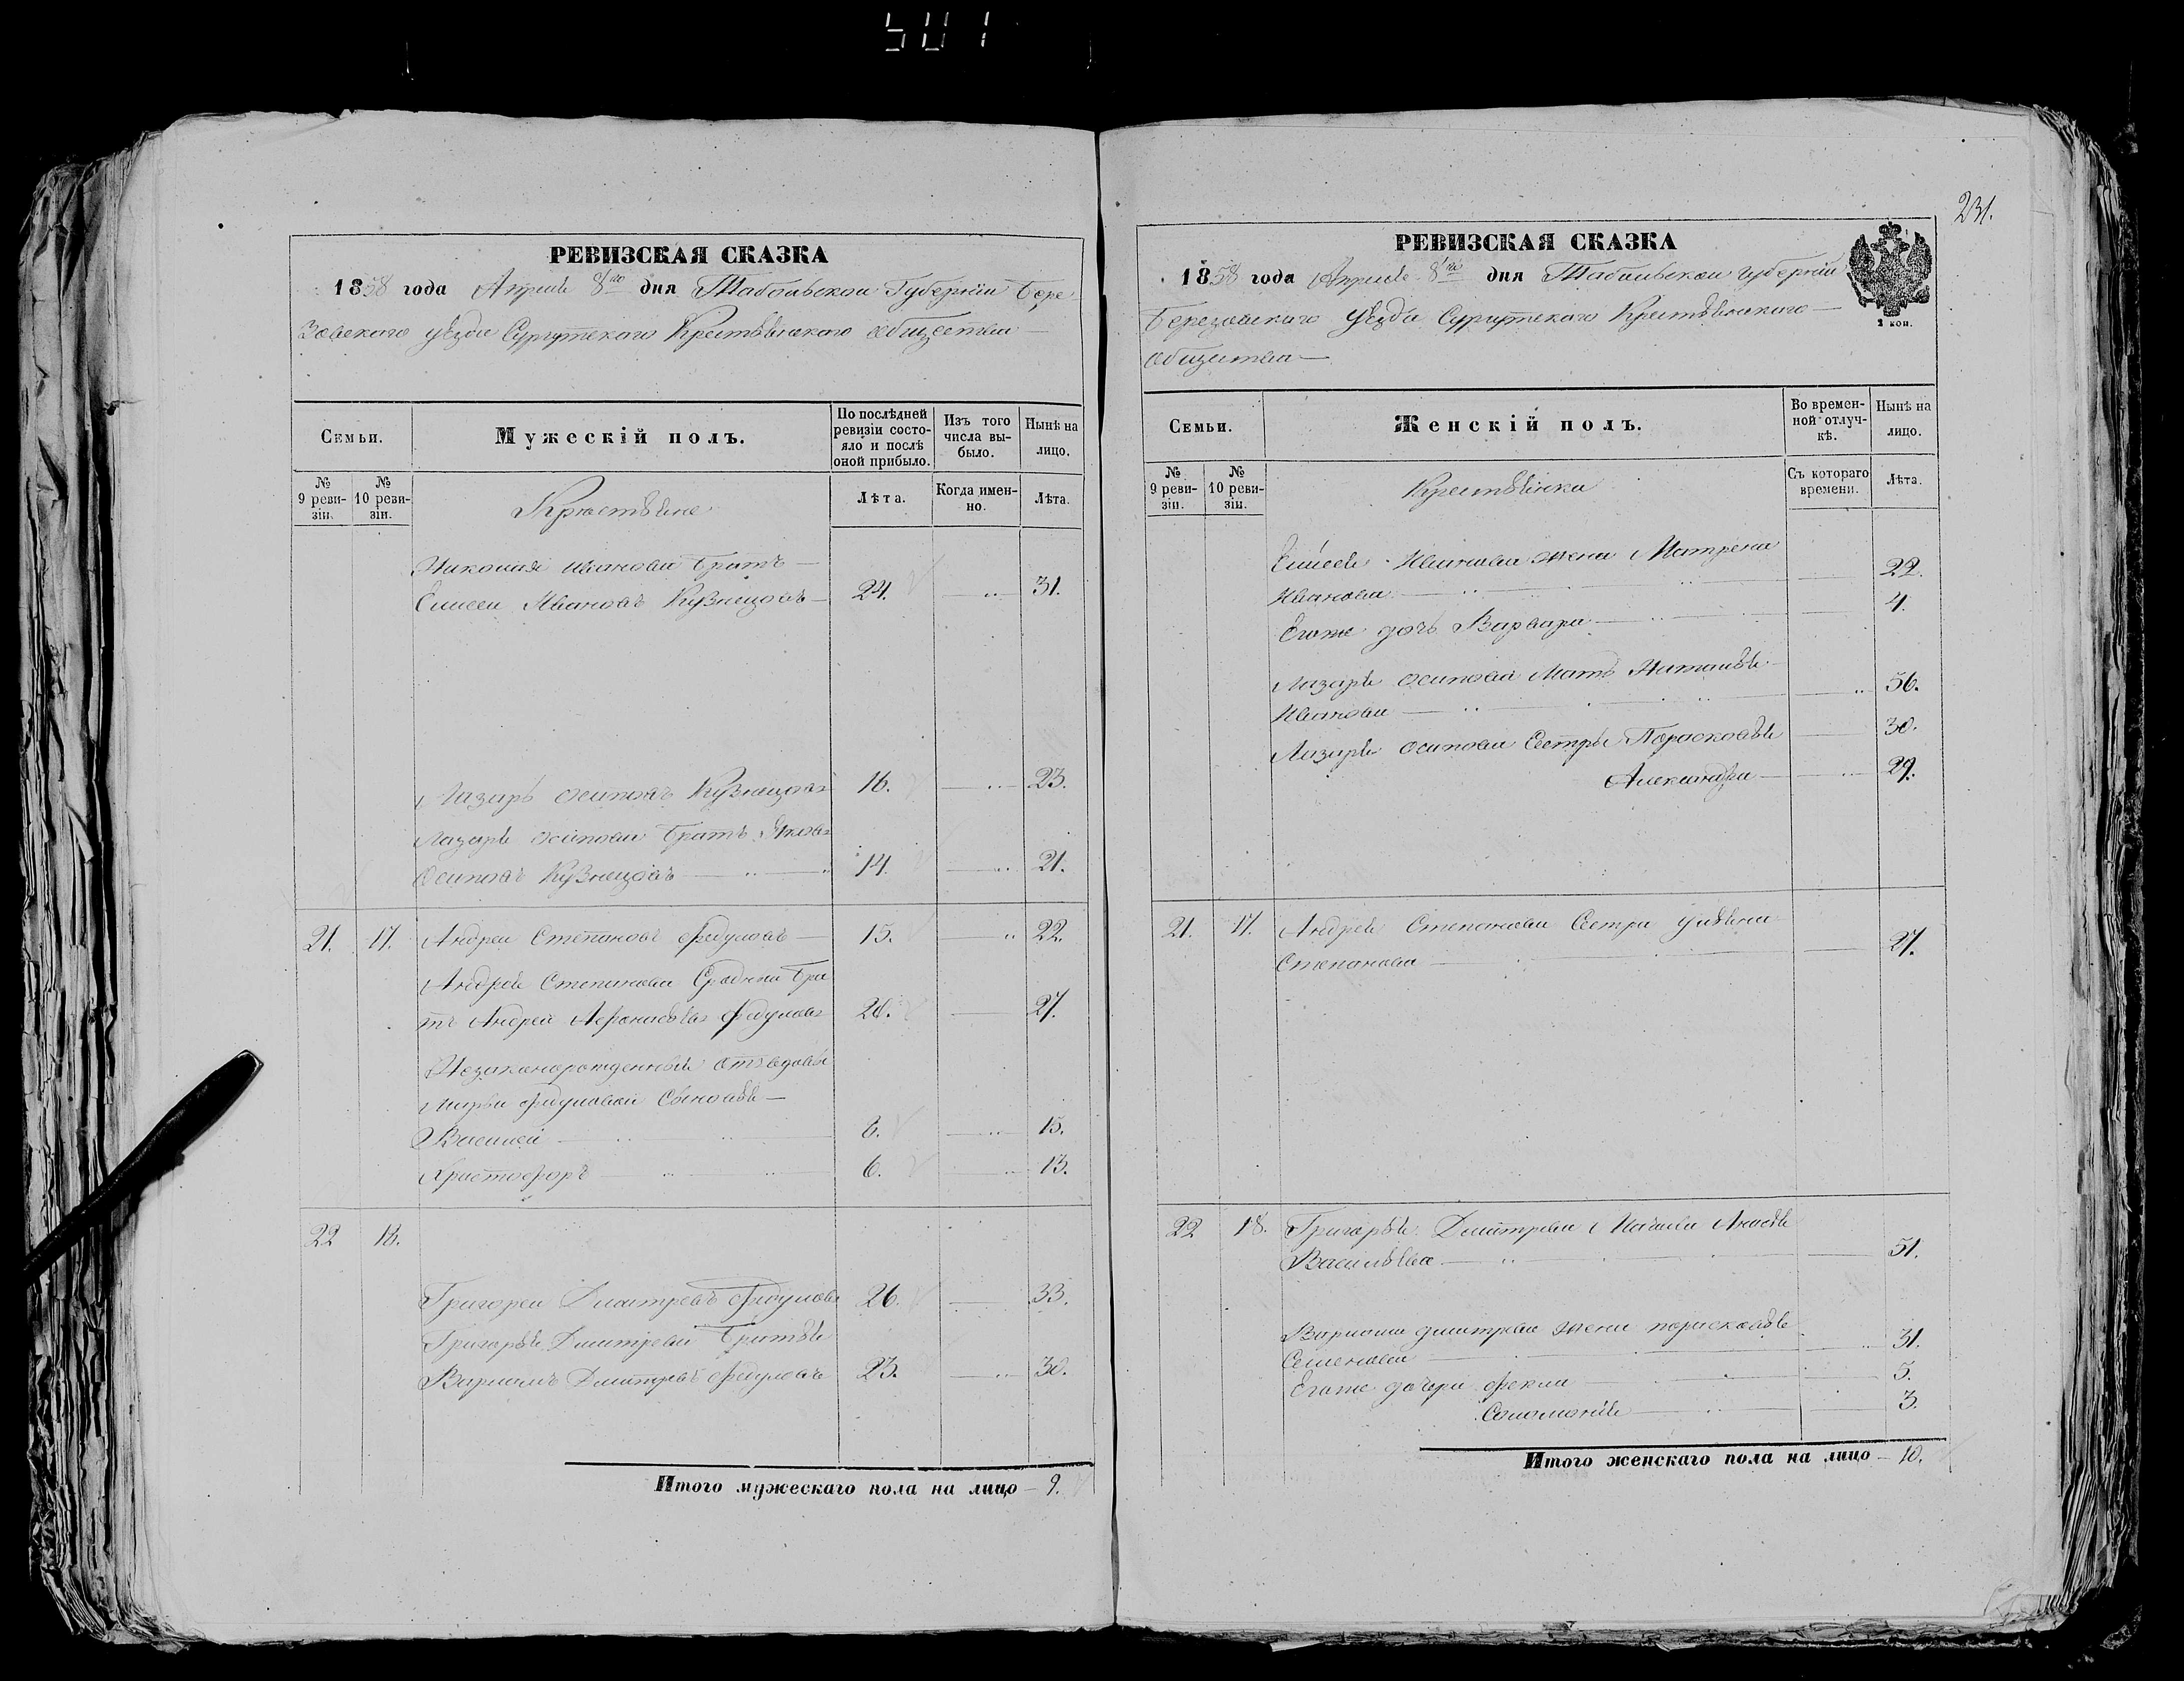 501
РЕВИЗСКАЯ СКАЗКА
1858 года Апреля 8го дня Табольской Губернiи Бере
зовскаго уезда Сургутскаго Крестьянскаго общества
Семьи.
Мужескiй полъ.
По послѣдней ревизiи состо-
яло и послѣ
оной прибыло.
Изъ того
числа вы-
было.
Нынѣ на
лицо.
№
9 реви-
зiи.
№
10 реви-
зiи.
Крестьяне
Лѣта.
Когда имен-
но.
Лѣта.
Николая Иванова братъ
Елисей Ивановъ Кузнецовъ 24. 31.
Лазарь Осиповъ Кузнецовъ 16. 23.
Лазаря Осипова братъ Яковъ
Осиповъ Кузнецовъ 14. 21.
21. 17. Андрей Степановъ Федуловъ 15. 22.
Андрея Степанова Сродный бра
тъ Андрей Афонасьевъ Федуловъ 20. 27.
Незаконорожденныя отъ вдовы
Марьи Федуловой Сыновья
Василей 8. 15.
Христофоръ 6. 13.
22 18.
Григорей Дмитревъ Федуловъ 26. 33.
Григорья Дмитрева братья
Варламъ Дмитревъ Федуловъ 23. 30.
Итого мужескаго пола на лицо 9.
231.
РЕВИЗСКАЯ СКАЗКА
1858 года Апреля 8го дня Табольской губернiи
Березовскаго уезда Сургутскаго Крестьянскаго
общества
2 коп.
Семьи.
Женскiй полъ.
Во времен-
ной отлуч-
кѣ.
Нынѣ на
лицо.
№
9 реви-
зiи.
№
10 реви-
зiи.
Крестьянки
Съ котораго
времени.
Лѣта.
Елисея Иванова жена Матрена
Иванова 22.
Егоже дочь Варвара 4.
Лазаря Осипова Мать Наталья
Иванова 56.
Лазаря Осипова Сестры Порасковья 30.
Александра 29.
21. 17. Андрея Степанова Сестра Ульяна
Степанова 27.
22 18. Григорья Дмитрева Мачиха Анисья
Васильева 51.
Варлама Дмитрева жена порасковья
Семенова 31.
Егоже дочери Фекла 5.
Соломонiя 3.
Итого женскаго пола на лицо 10.